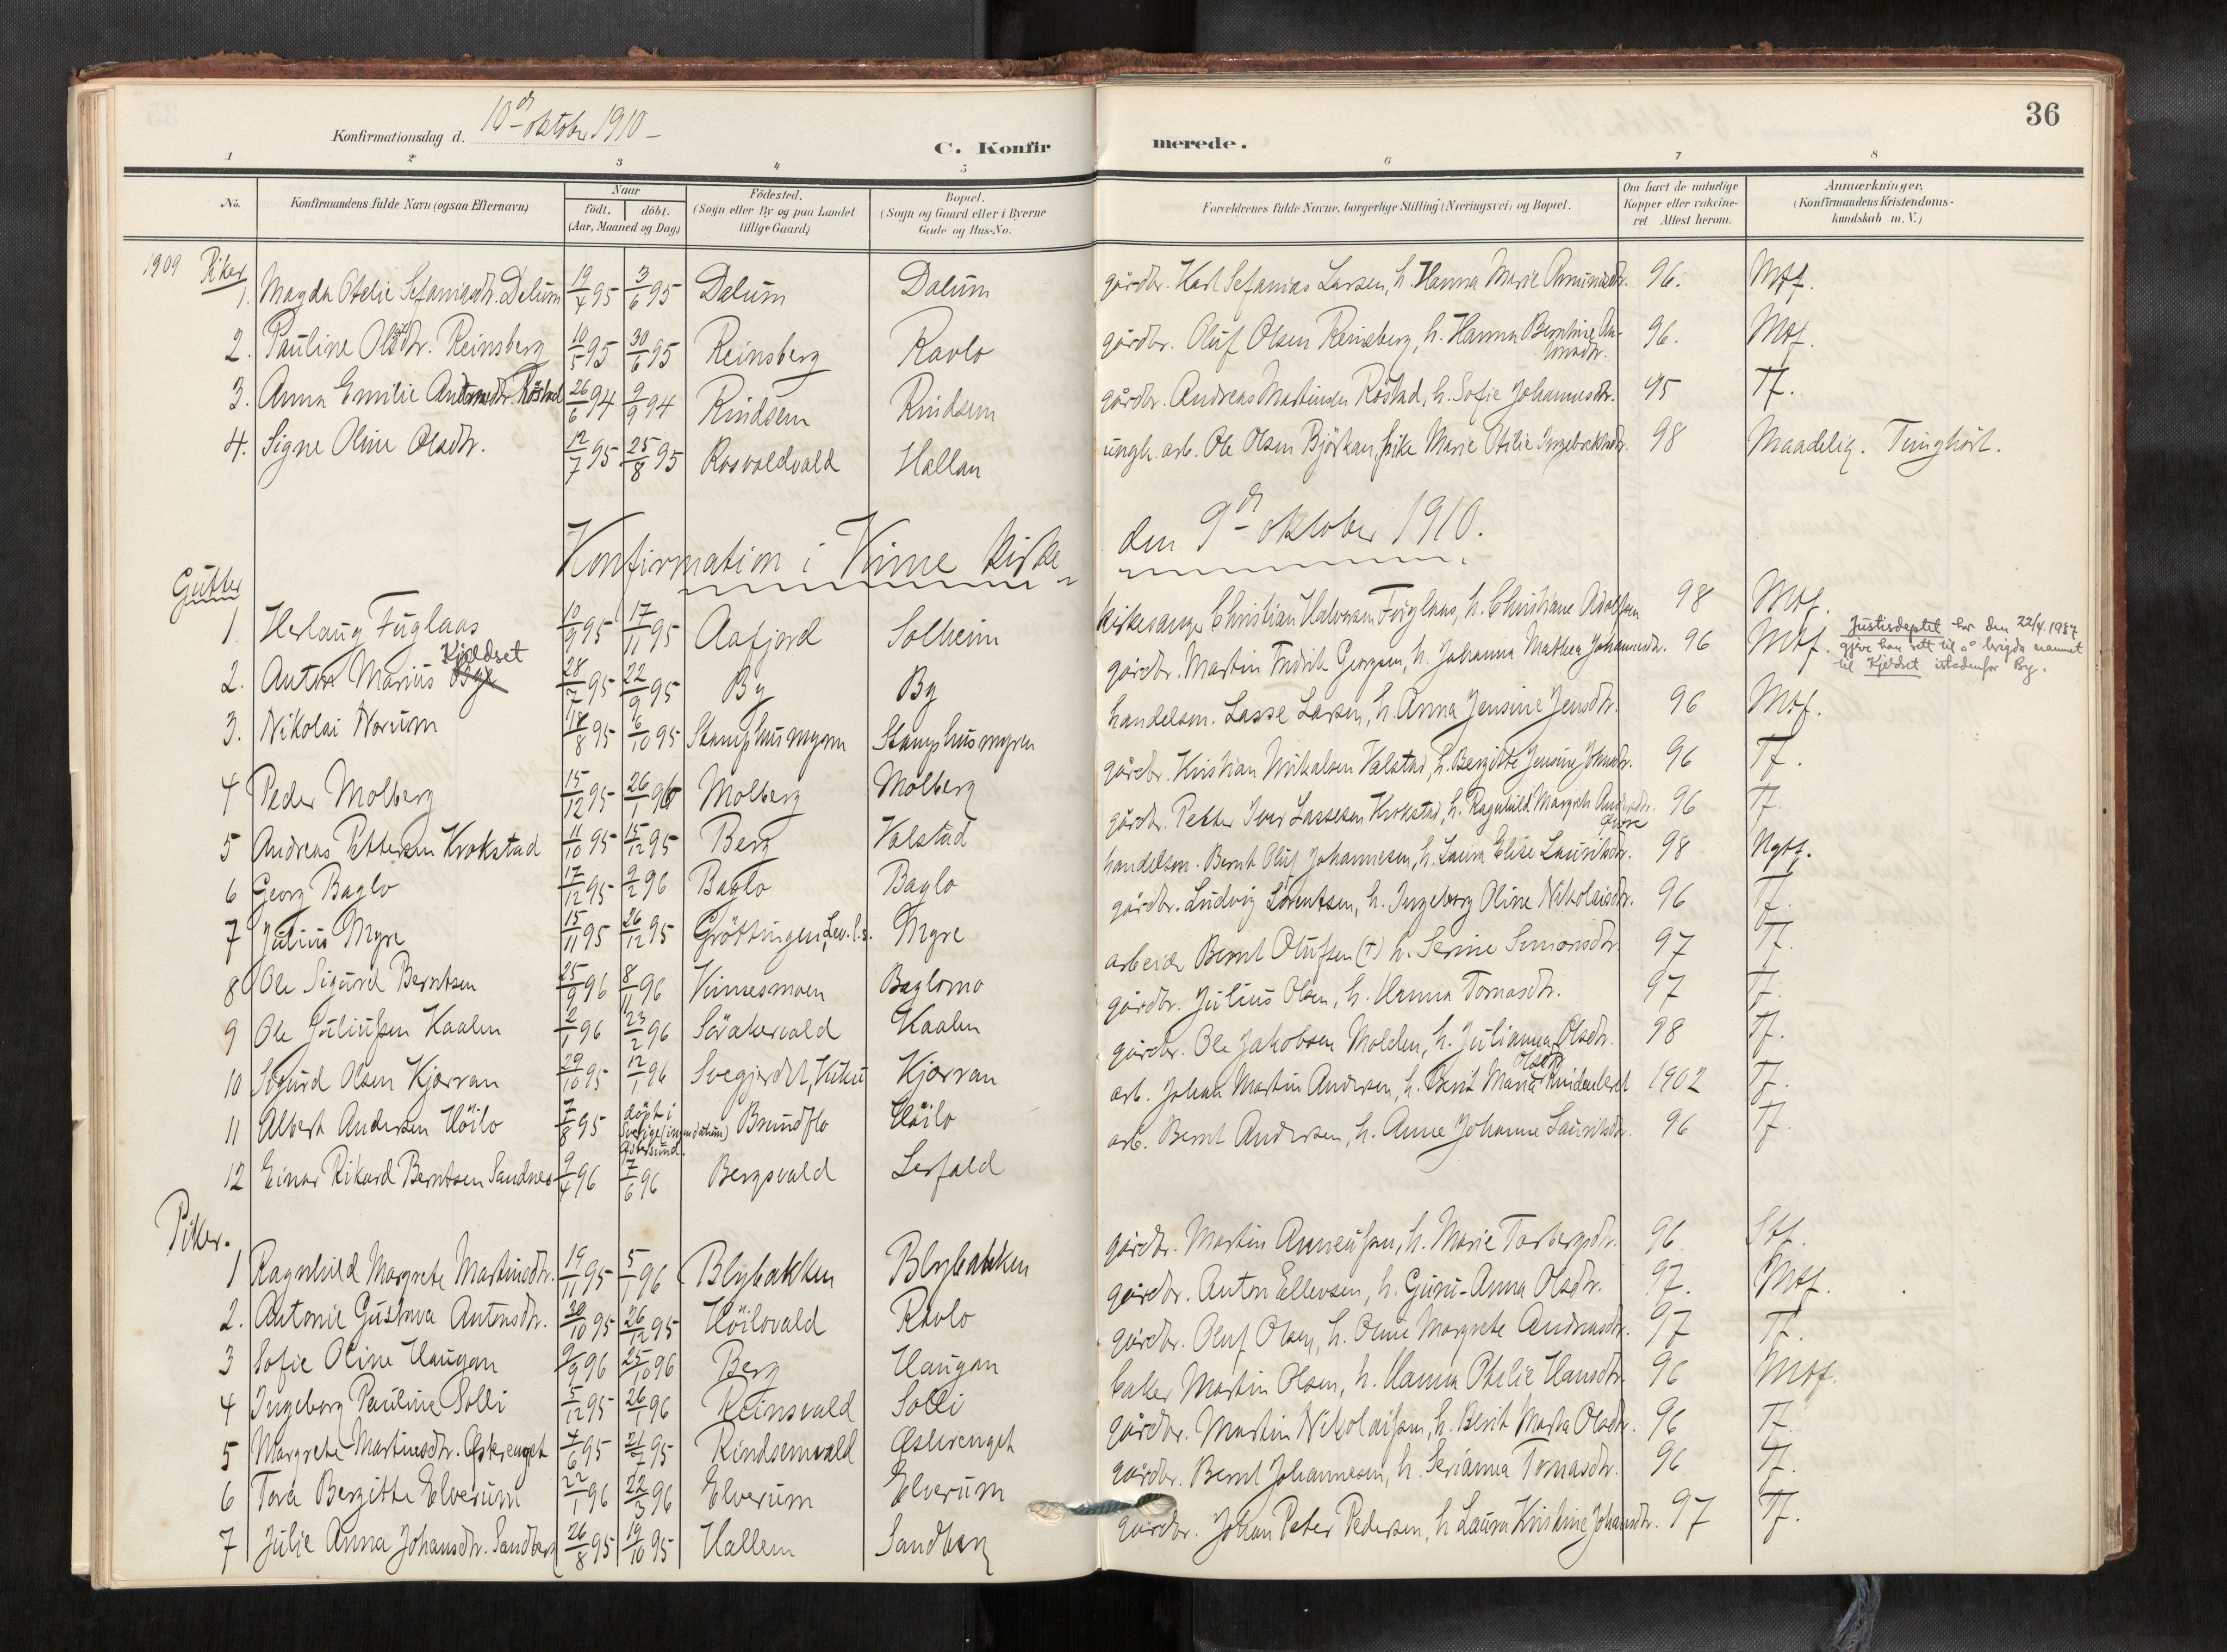 36
Konfirmationsdag d. 10de oktober 1910
C. Konfirmerede.
1 2 3 4 5 6 7 8
No. Konfirmandens fulde Navn (ogsaa Efternavn) Naar født. døbt. (Aar, Maaned og Dag) Fødested. (Sogn eller By og paa Landet tillige Gaard) Bopæl. (Sogn og Gaard eller i Byerne Gade og Hus-No. Forældrenes fulde Navne, borgerlige Stilling (Næringsvei) og Bopæl. Om havt de naturlige Kopper eller vaccineret Attest herom. Anmærkninger. (Konfirmandens Kristendomskundskab m. V.)
1909 Piker
1. Magda Otelie Sefaniasdtr. Dalum 19/4 95 3/6 95 Dalum Dalum gårdbr. Karl Sefanias Larsen, h. Hanna Marie 96. Mtf.
2. Pauline Olsdtr. Reinsberg 10/5 95 30/6 95 Reinsberg Ravlo gårdbr. Oluf Olsen Reinsberg, h. Hanna Berntine Antonsdtr. 96. Mtf.
3. Anna Emilie Røstad 26/6 94 9/9 94 Rindsem Rindsem gårdbr. Andreas Martinsen Røstad, h. Sofie Johannesdtr. 95 Tf.
4. Signe Oline Olsdtr. 12/7 95 25/8 95 Rosvoldvald Hallan ungk. arb. Ole Olsen Bjørkan, pike Marie Otilie Ingebrektsdtr. 98 Maadelig. Tunghørt.
Konfirmation i Vinne kirke den 9de oktober 1910.
Gutter
1. Herlaug Fuglaas 10/9 95 17/11 95 Aafjord Solheim kirkesanger Christian Halvorsen Fuglaas, h. Christiane Adolfsen 98 Mtf.
2. Anton Marius Bye Kjeldset 28/7 95 22/9 95 By By gårdbr. Martin Fredrik Georgsen, h. Johanna Mathea Johannesdtr. 96 Mtf. Justisdeptet har den 22/4 1957 gjeve han rett til å brigda namnet til Kjeldset istadenfor By.
3. Nikolai Norum 18/8 95 6/10 95 Stamphusmyren Stamphusmyren handelsm. Lasse Larsen, h. Anna Jensine Jensdtr. 96 Mtf.
4 Peder Molberg 15/12 95 26/1 96 Molberg Molberg gårdbr. Kristian Mikalsen Valstad, h. Bergitte Jensine Johnsdtr. 96 Tf.
5 Andreas Pettersen Krokstad 11/10 95 15/12 95 Berg Valstad gårdbr. Petter Iver Lassesen Krokstad, h. Ragnhild Margrete 96 Tf.
6 Georg Baglo 17/12 95 9/2 96 Baglo Baglo handelsm. Bernt Oluf Johannesen, h. Laura Elise Lauritsdtr. 98 Mgtf.
7 Julius Myre 15/11 95 26/12 95 Grøttingen, Lev. l.s. Myre gårdbr. Ludvig Lorentsen, h. Ingeborg Oline Nikolaisdtr. 96 Tf.
8 Ole Sigurd Berntsen 25/9 96 8/11 96 Vinnesmoen Baglomo arbeider Bernt Olufsen (†) h. Serine Simonsdtr. 97 Tf.
9 Ole Juliussen Kaalen 2/1 96 23/2 96 Søråkervald Kaalen gårdbr. Julius Olsen, h. Hanna Tomasdtr. 97 Tf.
10 Sigurd Olsen Kjørran 29/10 95 12/1 96 Svegjerdet, Vuku Kjørran gårdbr. Ole Jakobsen Molden, h. Julianna Olsdtr. 98 Tf.
11 Albert Andersen Høilo 7/8 95 døpt i Sverige Østersund. Brundflo Høilo arb. Johan Martin Andersen, h. Berit Maria Olsdtr. 1902 Tf.
12 Einar Rikard Berntsen Sandnes 9/4 96 7/6 96 Bergsvald Lerfald arb. Bernt Andersen, h. Anne Johanne Lauritsdtr. 96 Tf.
Piker.
1 Ragnhild Margrete Martinsdtr. 19/11 95 5/1 96 Blybakken Blybakken gårdbr. Martin Anneusen, h. Marie Torbergsdtr. 96 Stf.
2. Antonie Gustava Antonsdtr. 30/10 95 26/12 95 Høilovald Ravlo gårdbr. Anton Ellevsen, h. Guru-Anna Olsdtr. 97. Mtf.
3 Sofie Oline Haugan 9/9 96 25/10 96 Berg Haugan gårdbr. Oluf Olsen, h. Oline Margrete Andreasdtr. 97 Tf.
4 Ingeborg Pauline Solli 5/12 95 26/1 96 Reinsvald Solli baker Martin Olsen, h. Hanna Otelie Hansdtr. 96 Mtf.
5 Margrete Martinsdtr. 4/6 95 21/7 95 Rindsemvald gårdbr. Martin Nikolaisen, h. Berit Marta Olsdtr. 96 Tf.
6 Tora Bergitte Elverum 22/1 96 22/3 96 Elverum Elverum gårdbr. Bernt Johannesen, h. Serianna Tomasdtr. 96 Tf.
7 Julie Anna Johansdtr. Sandberg 26/8 95 19/10 95 Hallem Sandberg gårdbr. Johan Peter Pedersen, h. Laura Kristine Johansdtr. 97 Tf.